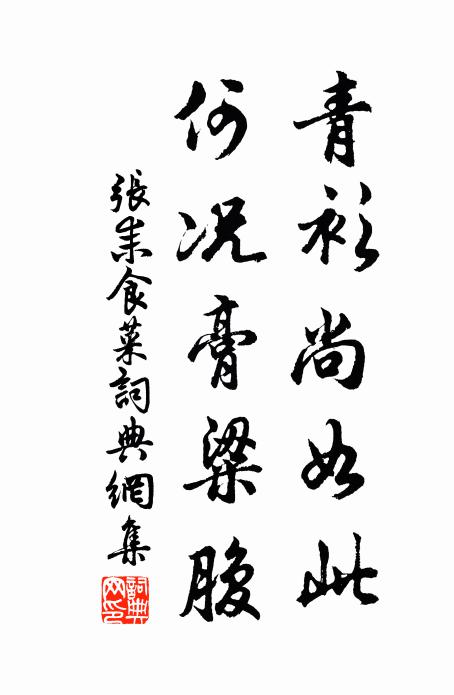 青衫尚如此
何况膏粱腹
張耒食菜詞典網集
詞典網印